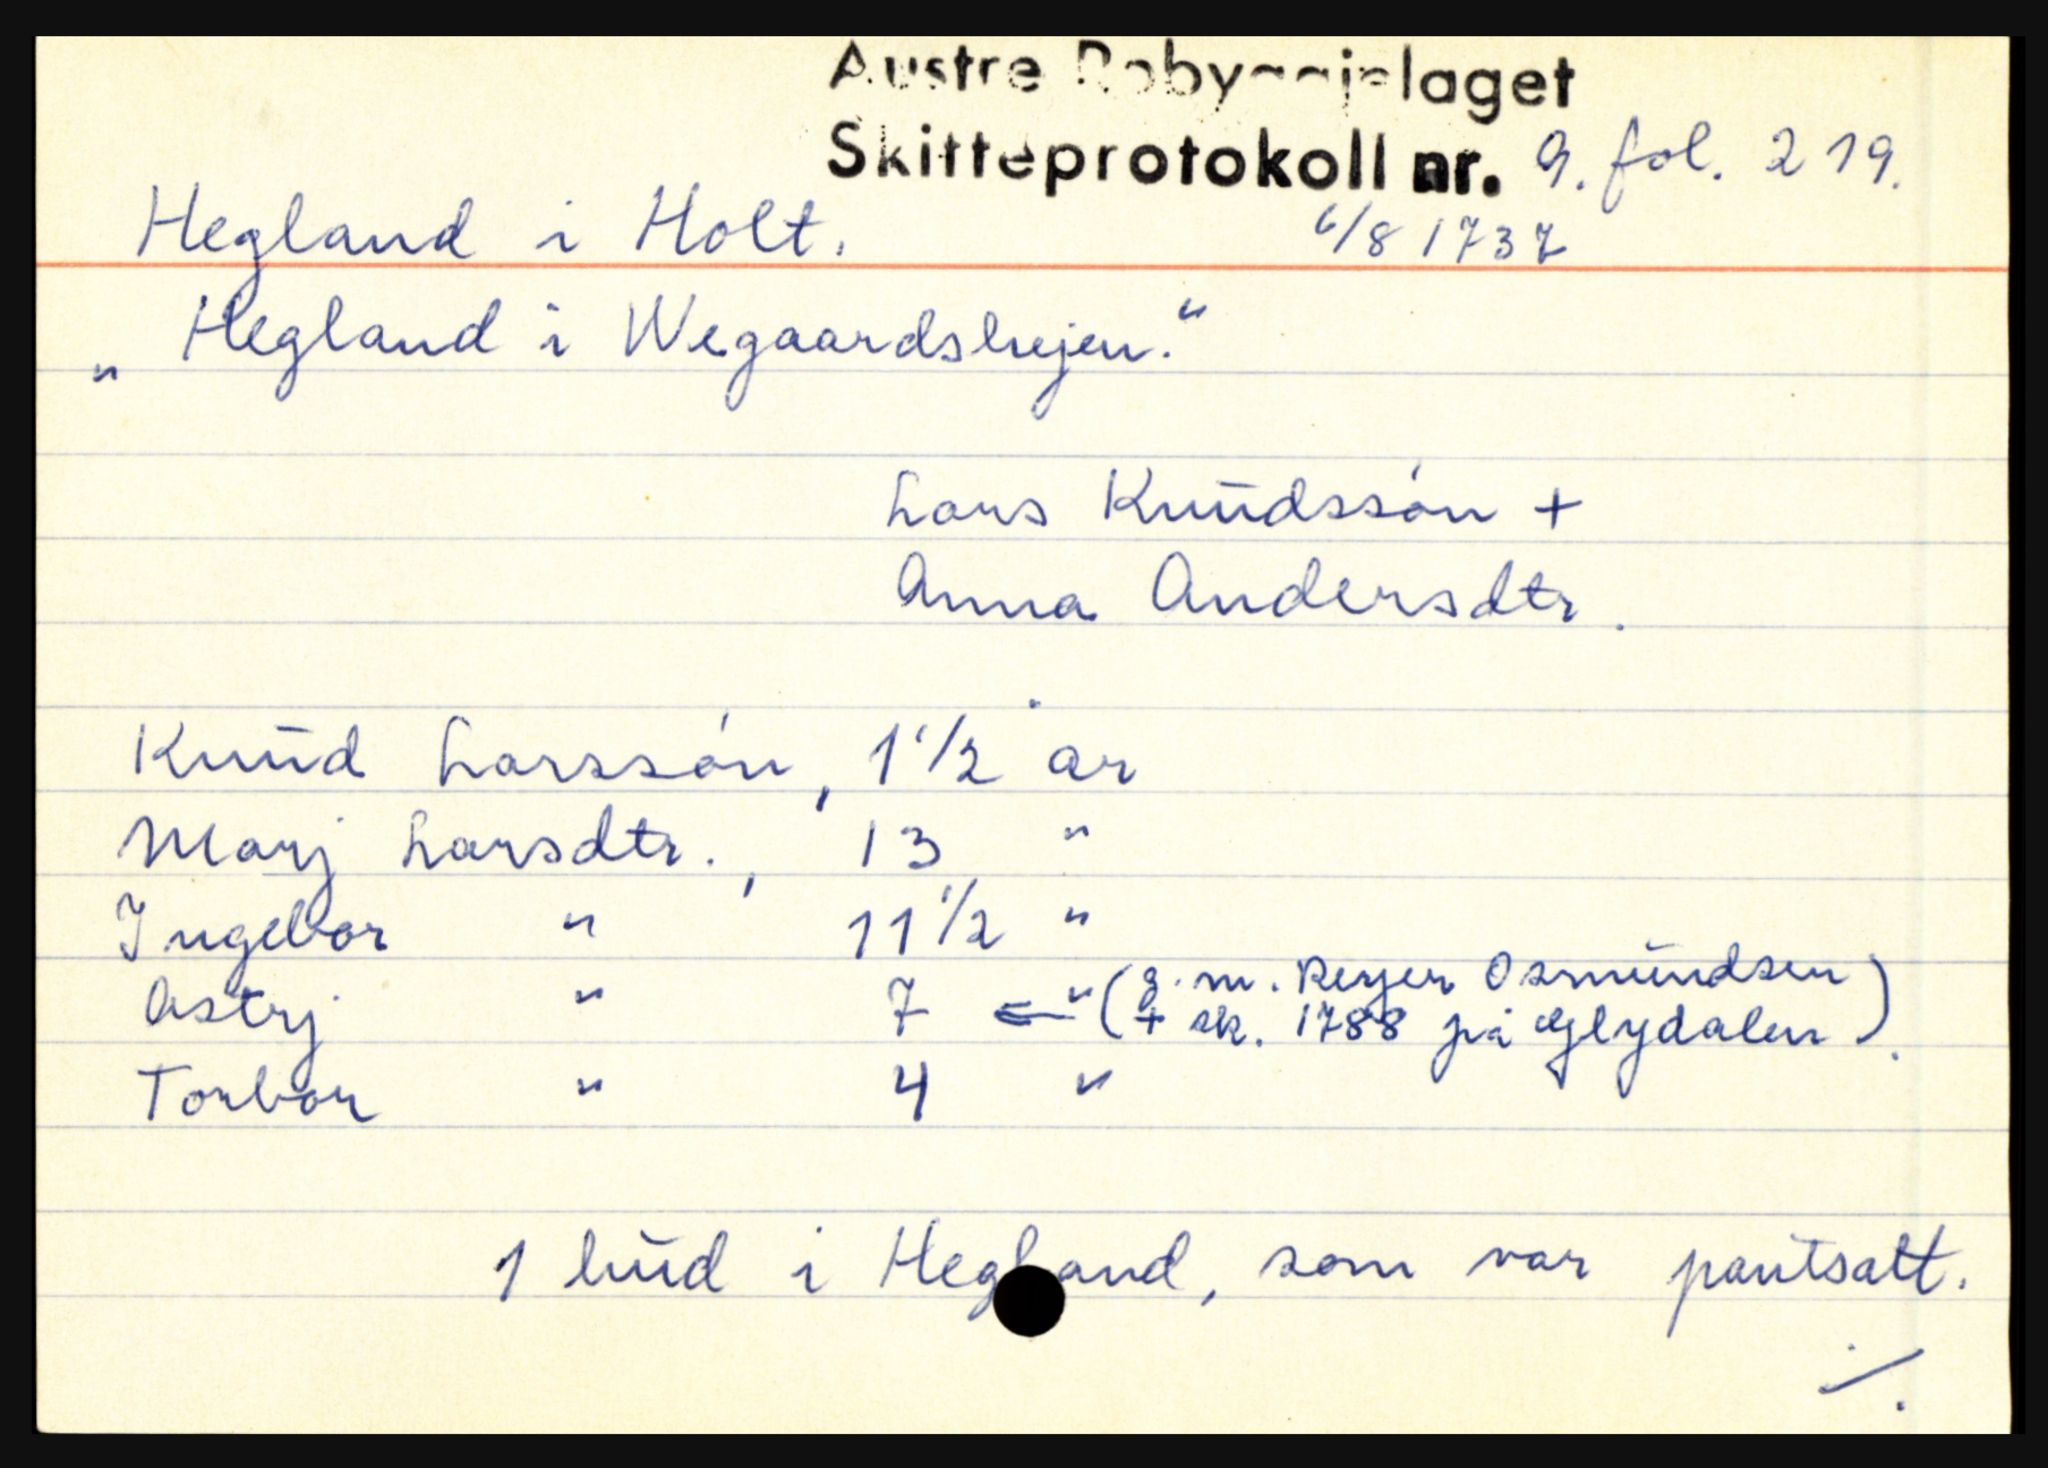 Austre Robyggjelaget
Skifteprotokoll nr. 9. fol. 219.
Hegland i Holt. 6/8 1737
„Hegland i Wegaardshejen.“
Lars Knudssøn +
Anna Andersdtr.
Knud Larssøn, 1 1/2 år
Marj Larsdtr., 13 "
Ingebor " 11 1/2 "
Astrj " 7 " (g. m. Reyer Osmundsen
+ sk. 1788 på Glydalen).
Torbor " 4 "
1 hud i Hegland, som var pantsatt.
./.